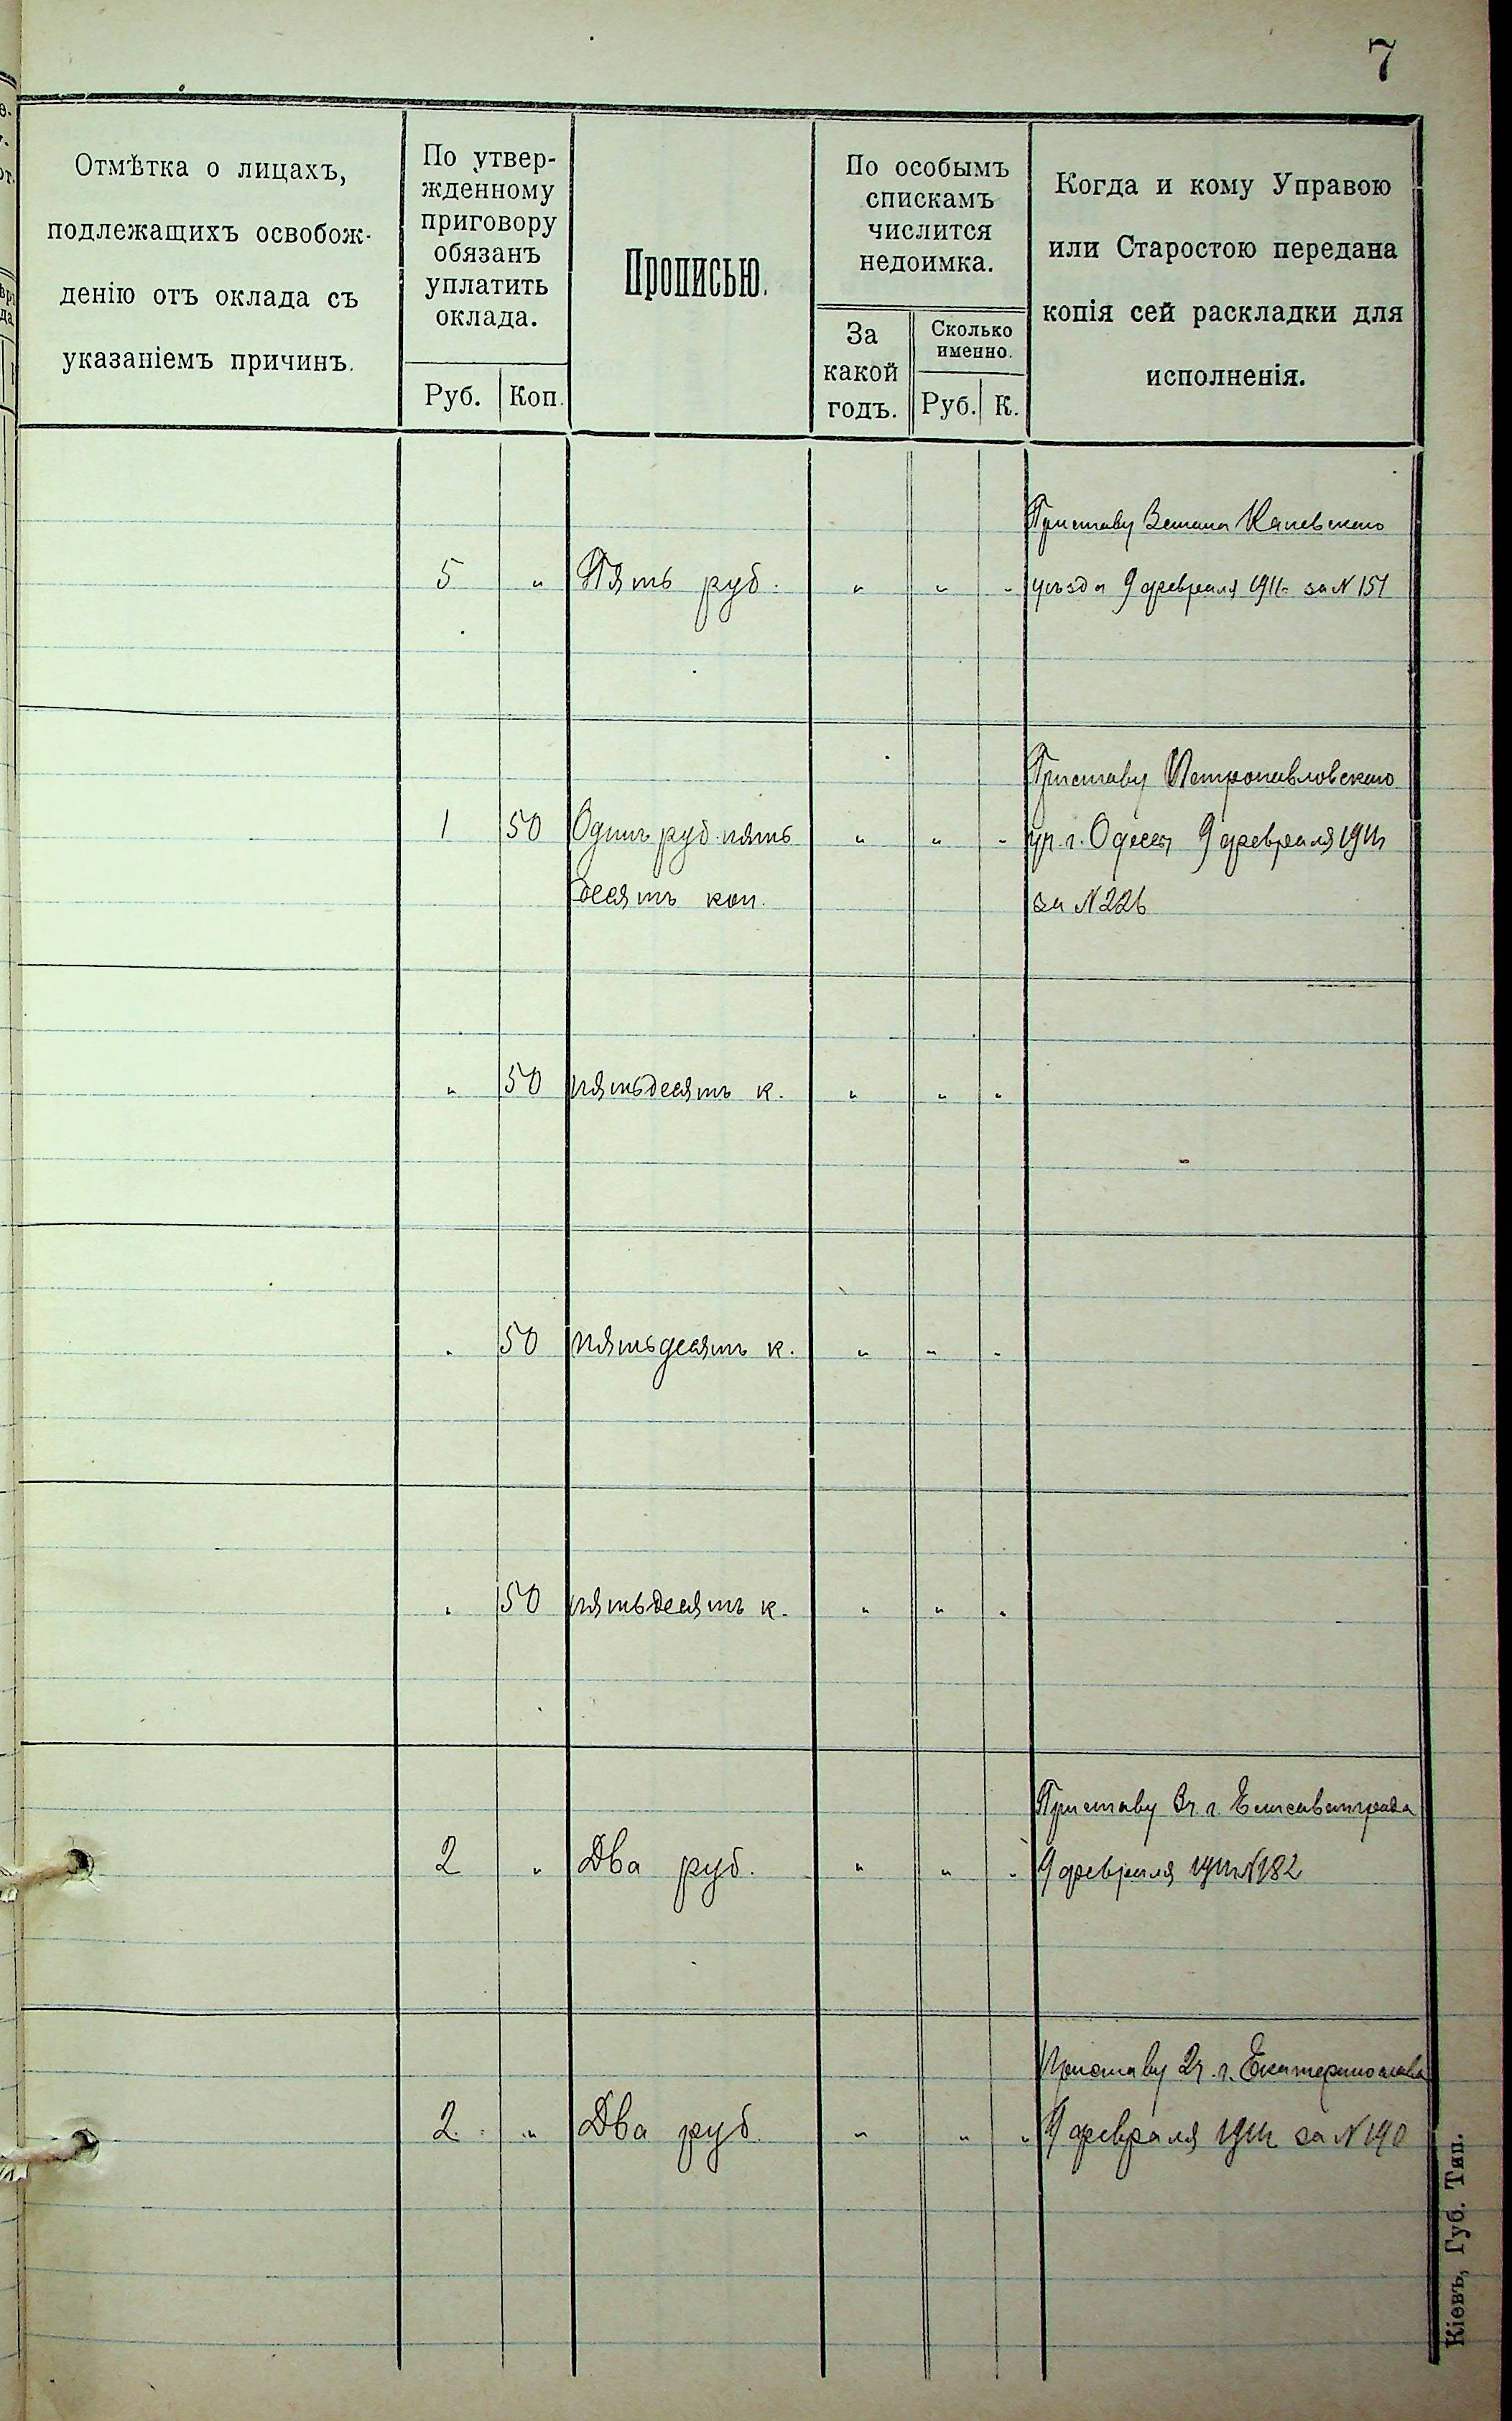 7
Отмѣтка о лицахъ,
подлежащихъ освобож-
денію отъ оклада съ
указаніемъ причинъ.
По утвер-
жденному
приговору
обязанъ
уплатить
оклада.
Руб. Коп.
Прописью.
По особымъ
спискамъ
числится
недоимка.
За
какой
годъ.
Сколько
именно.
Руб. К.
Когда и кому Управою
или Старостою передана
копія сей раскладки для
исполненія.
Приставу 3 стана Каневскаго
5 " Пять руб. " " " уѣзда 9 февраля 1911 г. за N 151
Приставу Петропавловскаго
1 50 Одинъ руб. пять " " " уч. г. Одессы 9 февраля 1911 г
десять коп. за N 226
" 50 пятьдесятъ к. " " "
" 50 пятьдесятъ к. " " "
" 50 пятьдесятъ к. " " "
Приставу 3 ч. г. Елисаветграда
2 " Два руб. " " " 9 февраля 1911 г N 182
Приставу 2 ч. г. Екатеринослава
2 " Два руб. " " " 9 февраля 1911 г за N 190
Кіевъ, Губ. Тип.